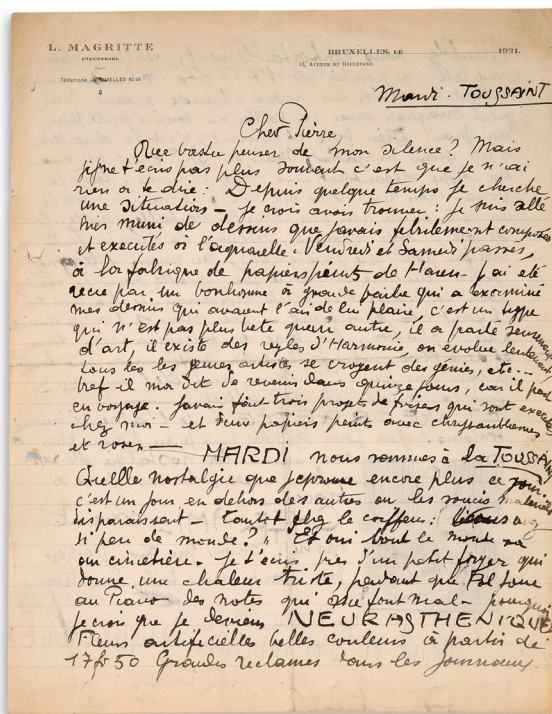 L. MAGRITTE
INDUSTRIEL
Téléphone BRUXELLES
BRUXELLES, LE 1921.
AVENUE DU BOULEVARD
Mardi. TOUSSAINT
Cher Pierre
Que vas tu penser de mon silence? Mais
si je ne t'écris pas plus souvent c'est que je n'ai
rien à te dire: Depuis quelque temps je cherche
une situation – je crois avoir trouver: je suis allé
hier muni de dessins que j'avais fébrilement composés
et executés à l'aquarelle: Vendredi et Samedi passés,
à la fabrique de papiers peints de Haren – j'ai été
recu par un bonhomme à grande barbe qui a examiné
mes dessins qui avaient l'air de lui plaire, c'est un type
qui n'est pas plus bete qu'un autre, il a parlé
d'art, il existe des regles d'Harmonie, on évolue lentement
tous les jeunes artistes se croyent des génies, etc...
bref il m'a dit de revenir dans quinze jours, car il part
en voyage. J'avais fait trois projets de frises qui sont
chez moi – et deux papiers peints avec chrysanthemes
et roses — MARDI nous sommes à la TOUSSAINT
Quelle nostalgie que j'eprouve encore plus ce jour.
c'est un jour en dehors des autres ou les soucis
disparaissent – tantot chez le coiffeur:
si peu de monde?" Et oui tout le monde va
au cimetière. Je t'écris près d'un petit foyer qui
donne une chaleur triste, pendant que Pol joue
au Piano des notes qui me font mal – pourquoi
je crois que je deviens NEURASTHENIQUE
Fleurs artificielles belles couleurs à partir de
17f50 Grandes reclames dans les journaux.